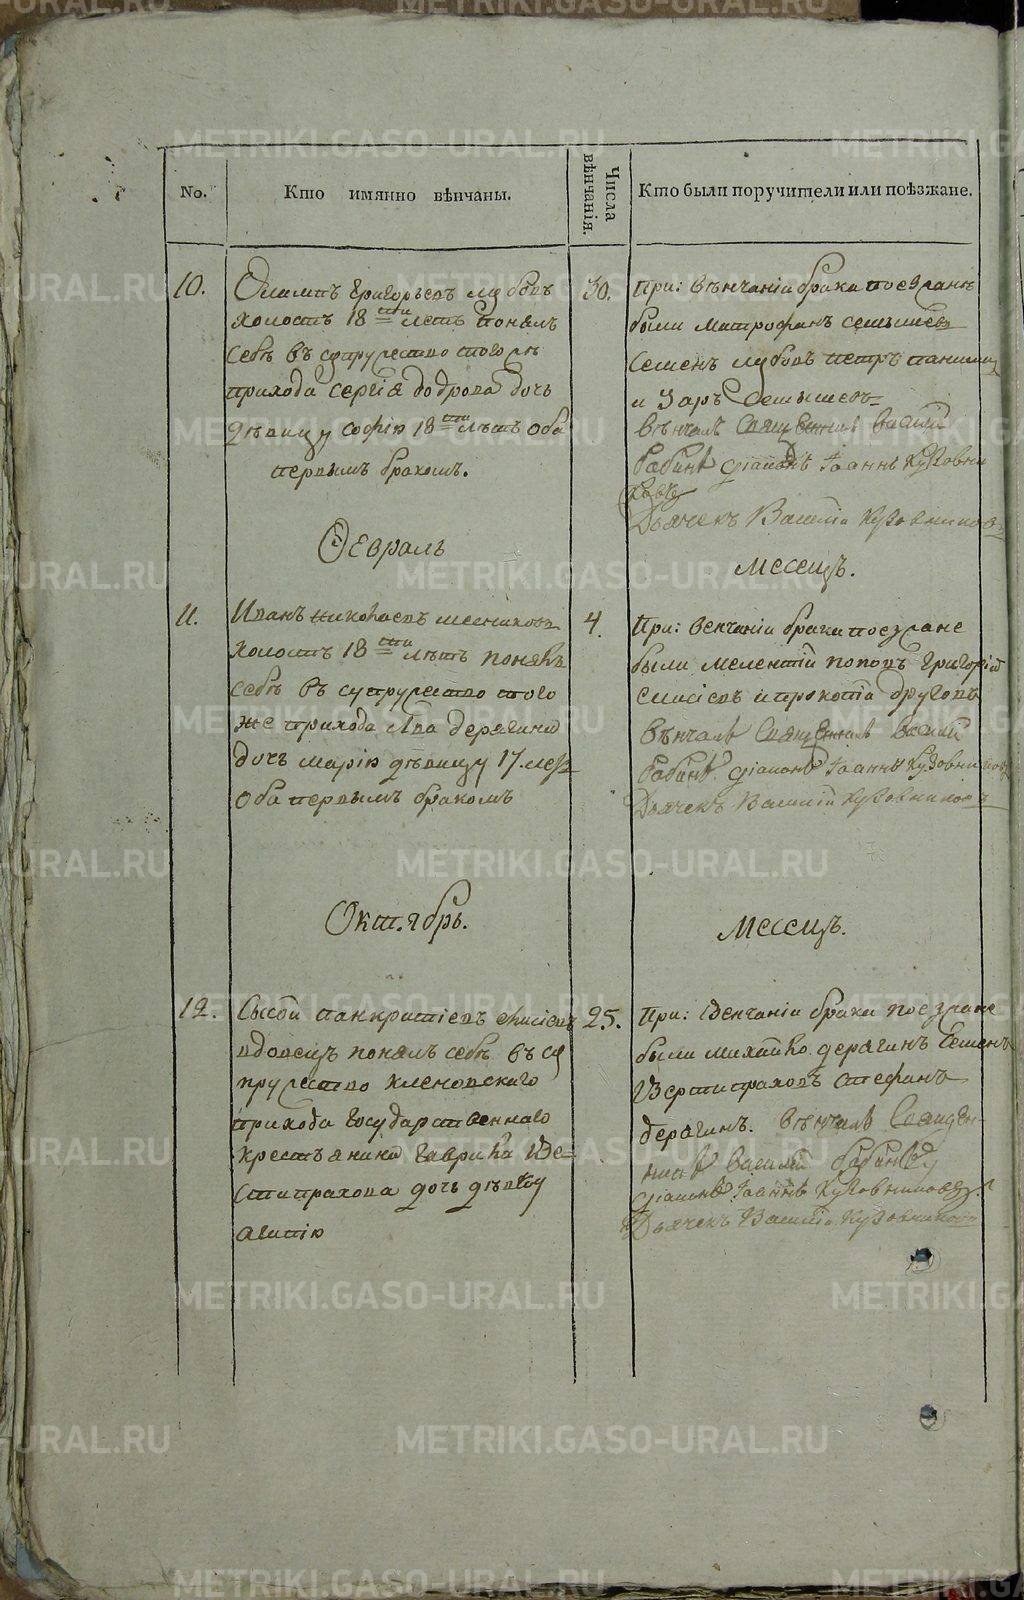 No.
Кто имянно вѣнчаны.
Числа вѣнчанія.
Кто были поручители или поѣзжане.
10.
Григорьевъ
холостъ 18 ти летъ понялъ
себѣ въ супружество того же
прихода Сергія дочь
дѣвицу Софію 18 ти лѣтъ оба
первымъ бракомъ.
30.
При: вѣнчаніи брака поезжанѣ
были Митрофанъ
Семенъ Петръ
и
вѣнчалъ Священникъ Василій
Бабинъ діаконъ Іоаннъ Кузовни
ковъ
Дьячекъ Василій Кузовниковъ
Февраль
Мессецъ.
11.
Иванъ Николаевъ
холостъ 18 ти лѣтъ понялъ
себѣ въ супружество того
же прихода Льва Дерягина
дочь Марію дѣвицу 17. летъ
оба первымъ бракомъ
4.
При: венчаніи брака поезжане
были Мелентій Поповъ Григорій
и Прокопій Друговъ
вѣнчалъ Священникъ Василій
Бабинъ. діаконъ Іоаннъ Кузовниковъ
Дьячекъ Василій Кузовниковъ
Октябрь.
Мессецъ.
12.
Сысой Панкратіевъ
вдовецъ понялъ себѣ въ су
пружество Кленовскаго
прихода государственнаго
крестьянина Гаврила Ве=
дочь дѣвку
25.
При: венчаніи брака поезжане
были Михайло Дерягинъ Семенъ
Стефанъ
Дерягинъ. вѣнчалъ Священ-
никъ Василій Бабинъ
діаконъ Іоаннъ Кузовниковъ
Дьячекъ Василій Кузовниковъ
METRIKI.GASO-URAL.RU